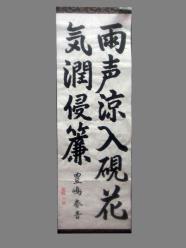 雨声涼入硯花
気潤侵簾
豊嶋春吾